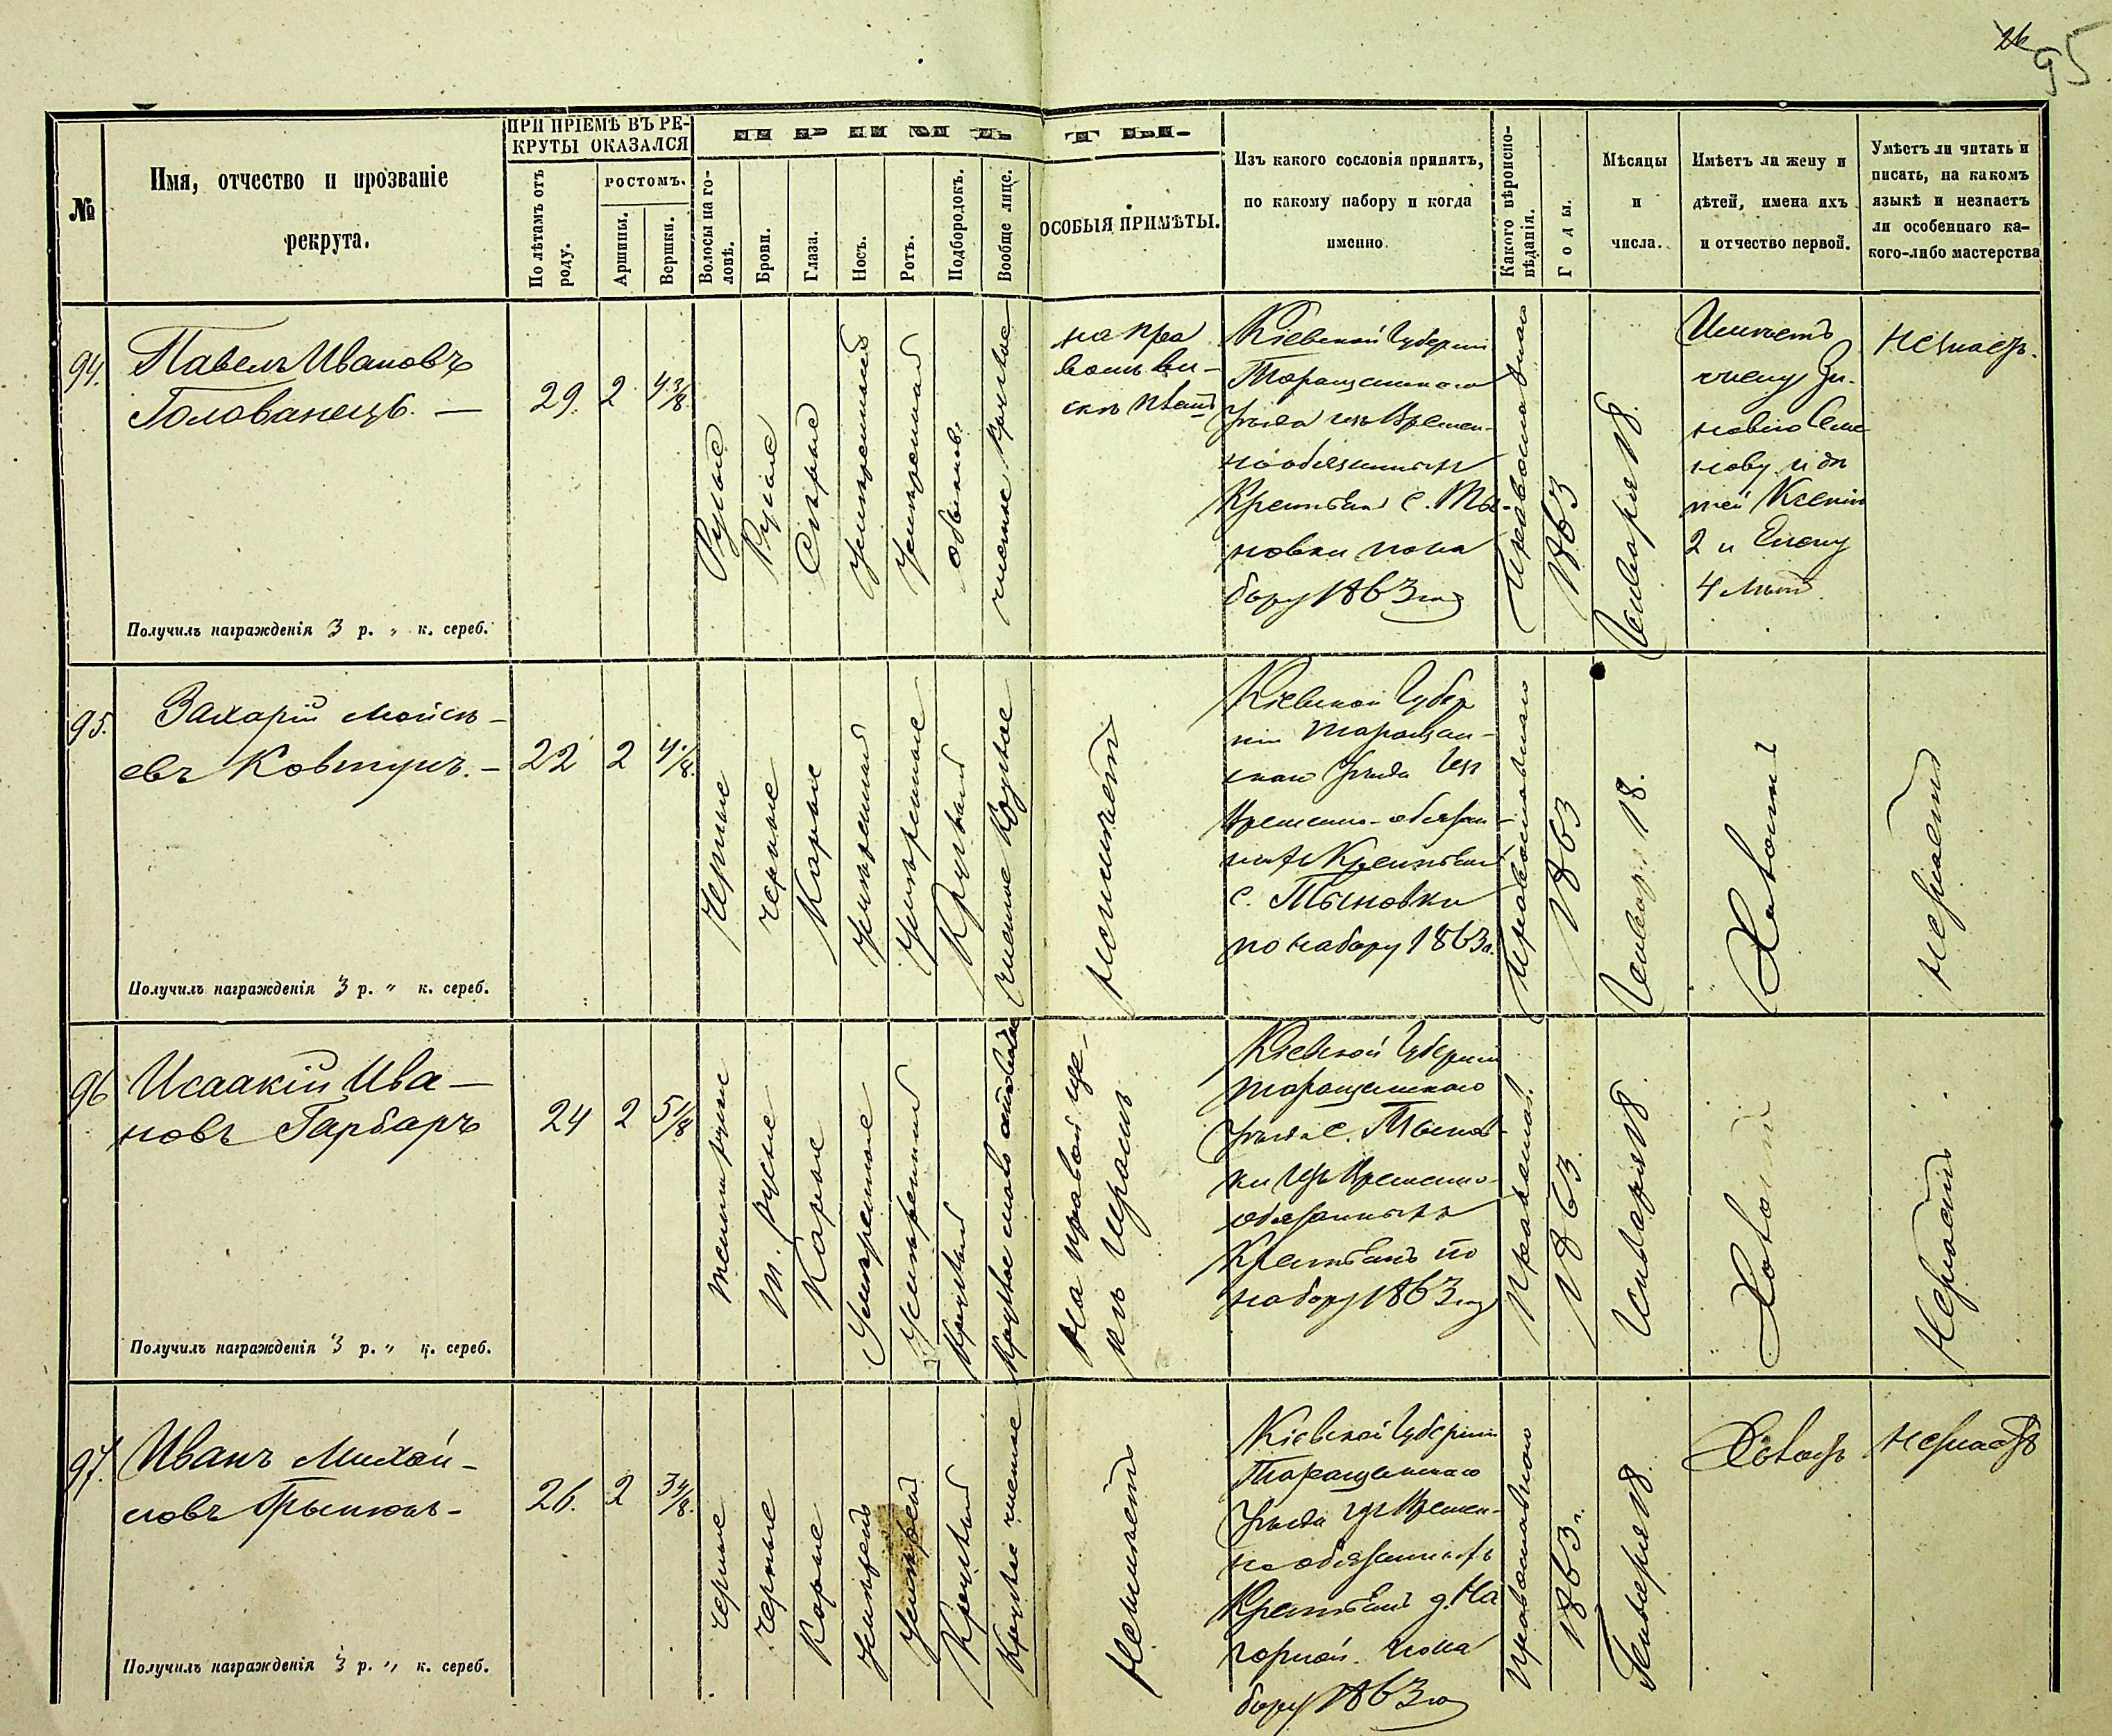 95
№
Имя, отчество и прозваніе
рекрута.
ПРИ ПРІЕМѢ ВЪ РЕ-
КРУТЫ ОКАЗАЛСЯ
По лѣтамъ отъ
роду.
РОСТОМЪ.
Аршины.
Вершки.
ПРИМѢТЫ.
Волосы на го-
ловѣ.
Брови.
Глаза.
Носъ.
Ротъ.
Подбородокъ.
Вообще лице.
ОСОБЫЯ ПРИМѢТЫ.
Изъ какого сословія принятъ,
по какому набору и когда
именно.
Какого вѣроиспо-
вѣданія.
Годы.
Мѣсяцы
и
числа.
Имѣетъ ли жену и
дѣтей, имена ихъ
и отчество первой.
Умѣетъ ли читать и
писать, на какомъ
языкѣ и незнаетъ
ли особеннаго ка-
кого-либо мастерства
94.
Павелъ Ивановъ
Голованецъ. —
29.
2
4 3/8.
Русые
Русые
Сѣрые
Умѣренный
Умѣренный
обыкнов.
чистое круглое
на пра
вомъ ви-
скѣ
Кіевской Губерніи
Таращанскаго
Уѣзда изъ Времен-
нообязанныхъ
Крестьянъ с. Ты-
новки по на
бору 1863 года
Православнаго
1863
Генваря 18.
Имѣетъ
жену Зи-
новію Семе
нову и дѣ
тей Ксенію
2 и Елену
4 лѣтъ
незнаетъ.
Получилъ награжденія 3 р. „ к. сереб.
95.
Захарій Моисе-
евъ Ковтунъ. —
22
2
4 1/8.
Черные
черные
Каріе
умѣренный
умѣренные
Круглый
чистое круглое
неимѣетъ
Кіевской Губер
ніи Таращан-
скаго Уѣзда Изъ
Временно-обязан-
ныхъ Крестьянъ
с. Тыновки
по набору 1863 г.
Православнаго
1863
Генваря 18.
Холостъ
незнаетъ
Получилъ награжденія 3 р. „ к. сереб.
96
Исаакій Ива —
новъ Гарбаръ
24
2
5 1/8
темнорусые
т. русые
Каріе
Умѣренные
Умѣренный
Круглый
Круглое
На правой ще-
кѣ шрамъ
Кіевской Губерніи
Таращанскаго
Уѣзда с. Тынов-
ки Изъ Временно-
обязанныхъ
Крестьянъ по
набору 1863 года
Православ.
1863.
Генваря 18
Холостъ
Незнаетъ
Получилъ награжденія 3 р. „ к. сереб.
97.
Иванъ Михай-
ловъ
26.
2
3 4/8.
черные
черные
Каріе
Умѣрен
Умѣрен
Круглый
Круглое чистое
Неимѣетъ
Кіевской Губерніи
Таращанскаго
Уѣзда изъ Времен-
но обязанныхъ
Крестьянъ д. На
горной. по на
бору 1863 го
православнаго
1863 г.
Генваря 18.
Холостъ
незнаетъ
Получилъ награжденія 3 р. „ к. сереб.